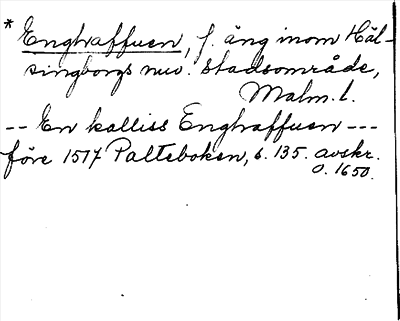 * Enghraffuen, f. äng inom Häl-
singborgs nuv. stadsområde,
Malm. l.
-- En kalliss Enghraffuen ---
före 1517 Palteboken, s. 135. avskr.
o. 1650.